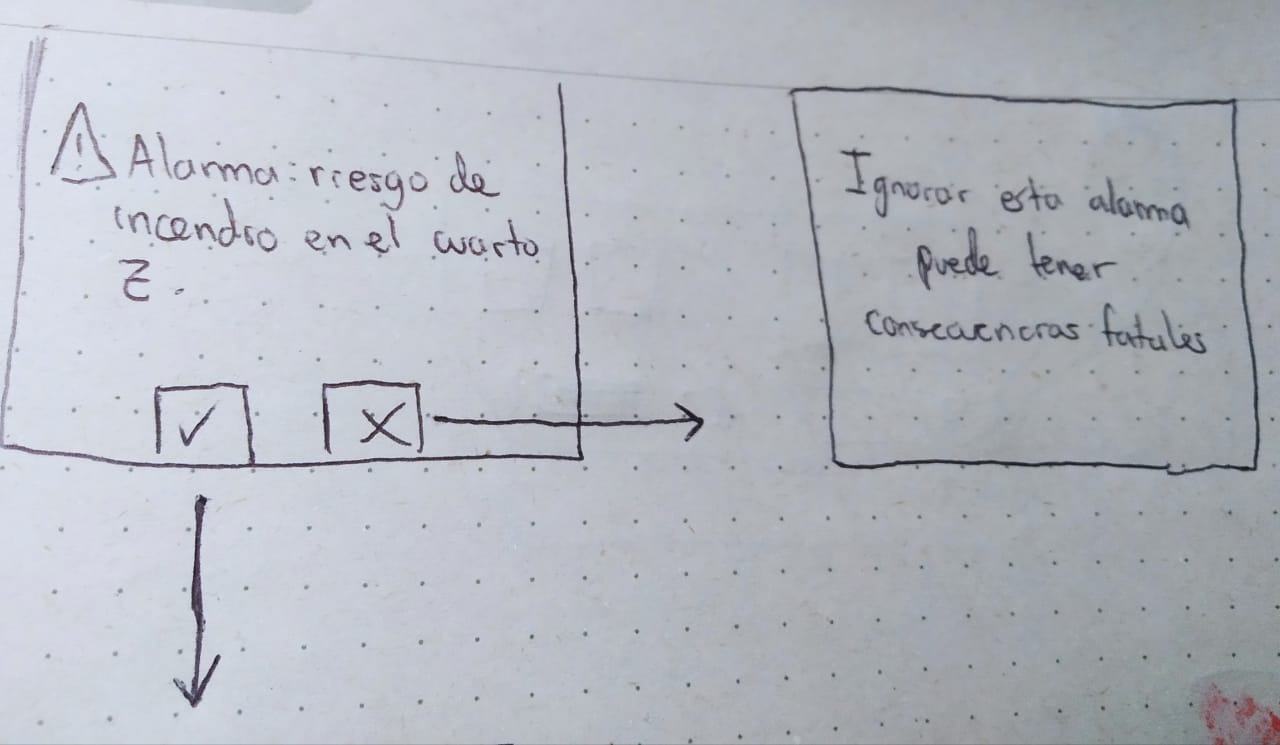 Alarma: riesgo de
incendio en el cuarto
Z.
Ignorar esta alarma
puede tener
consecuencias fatales